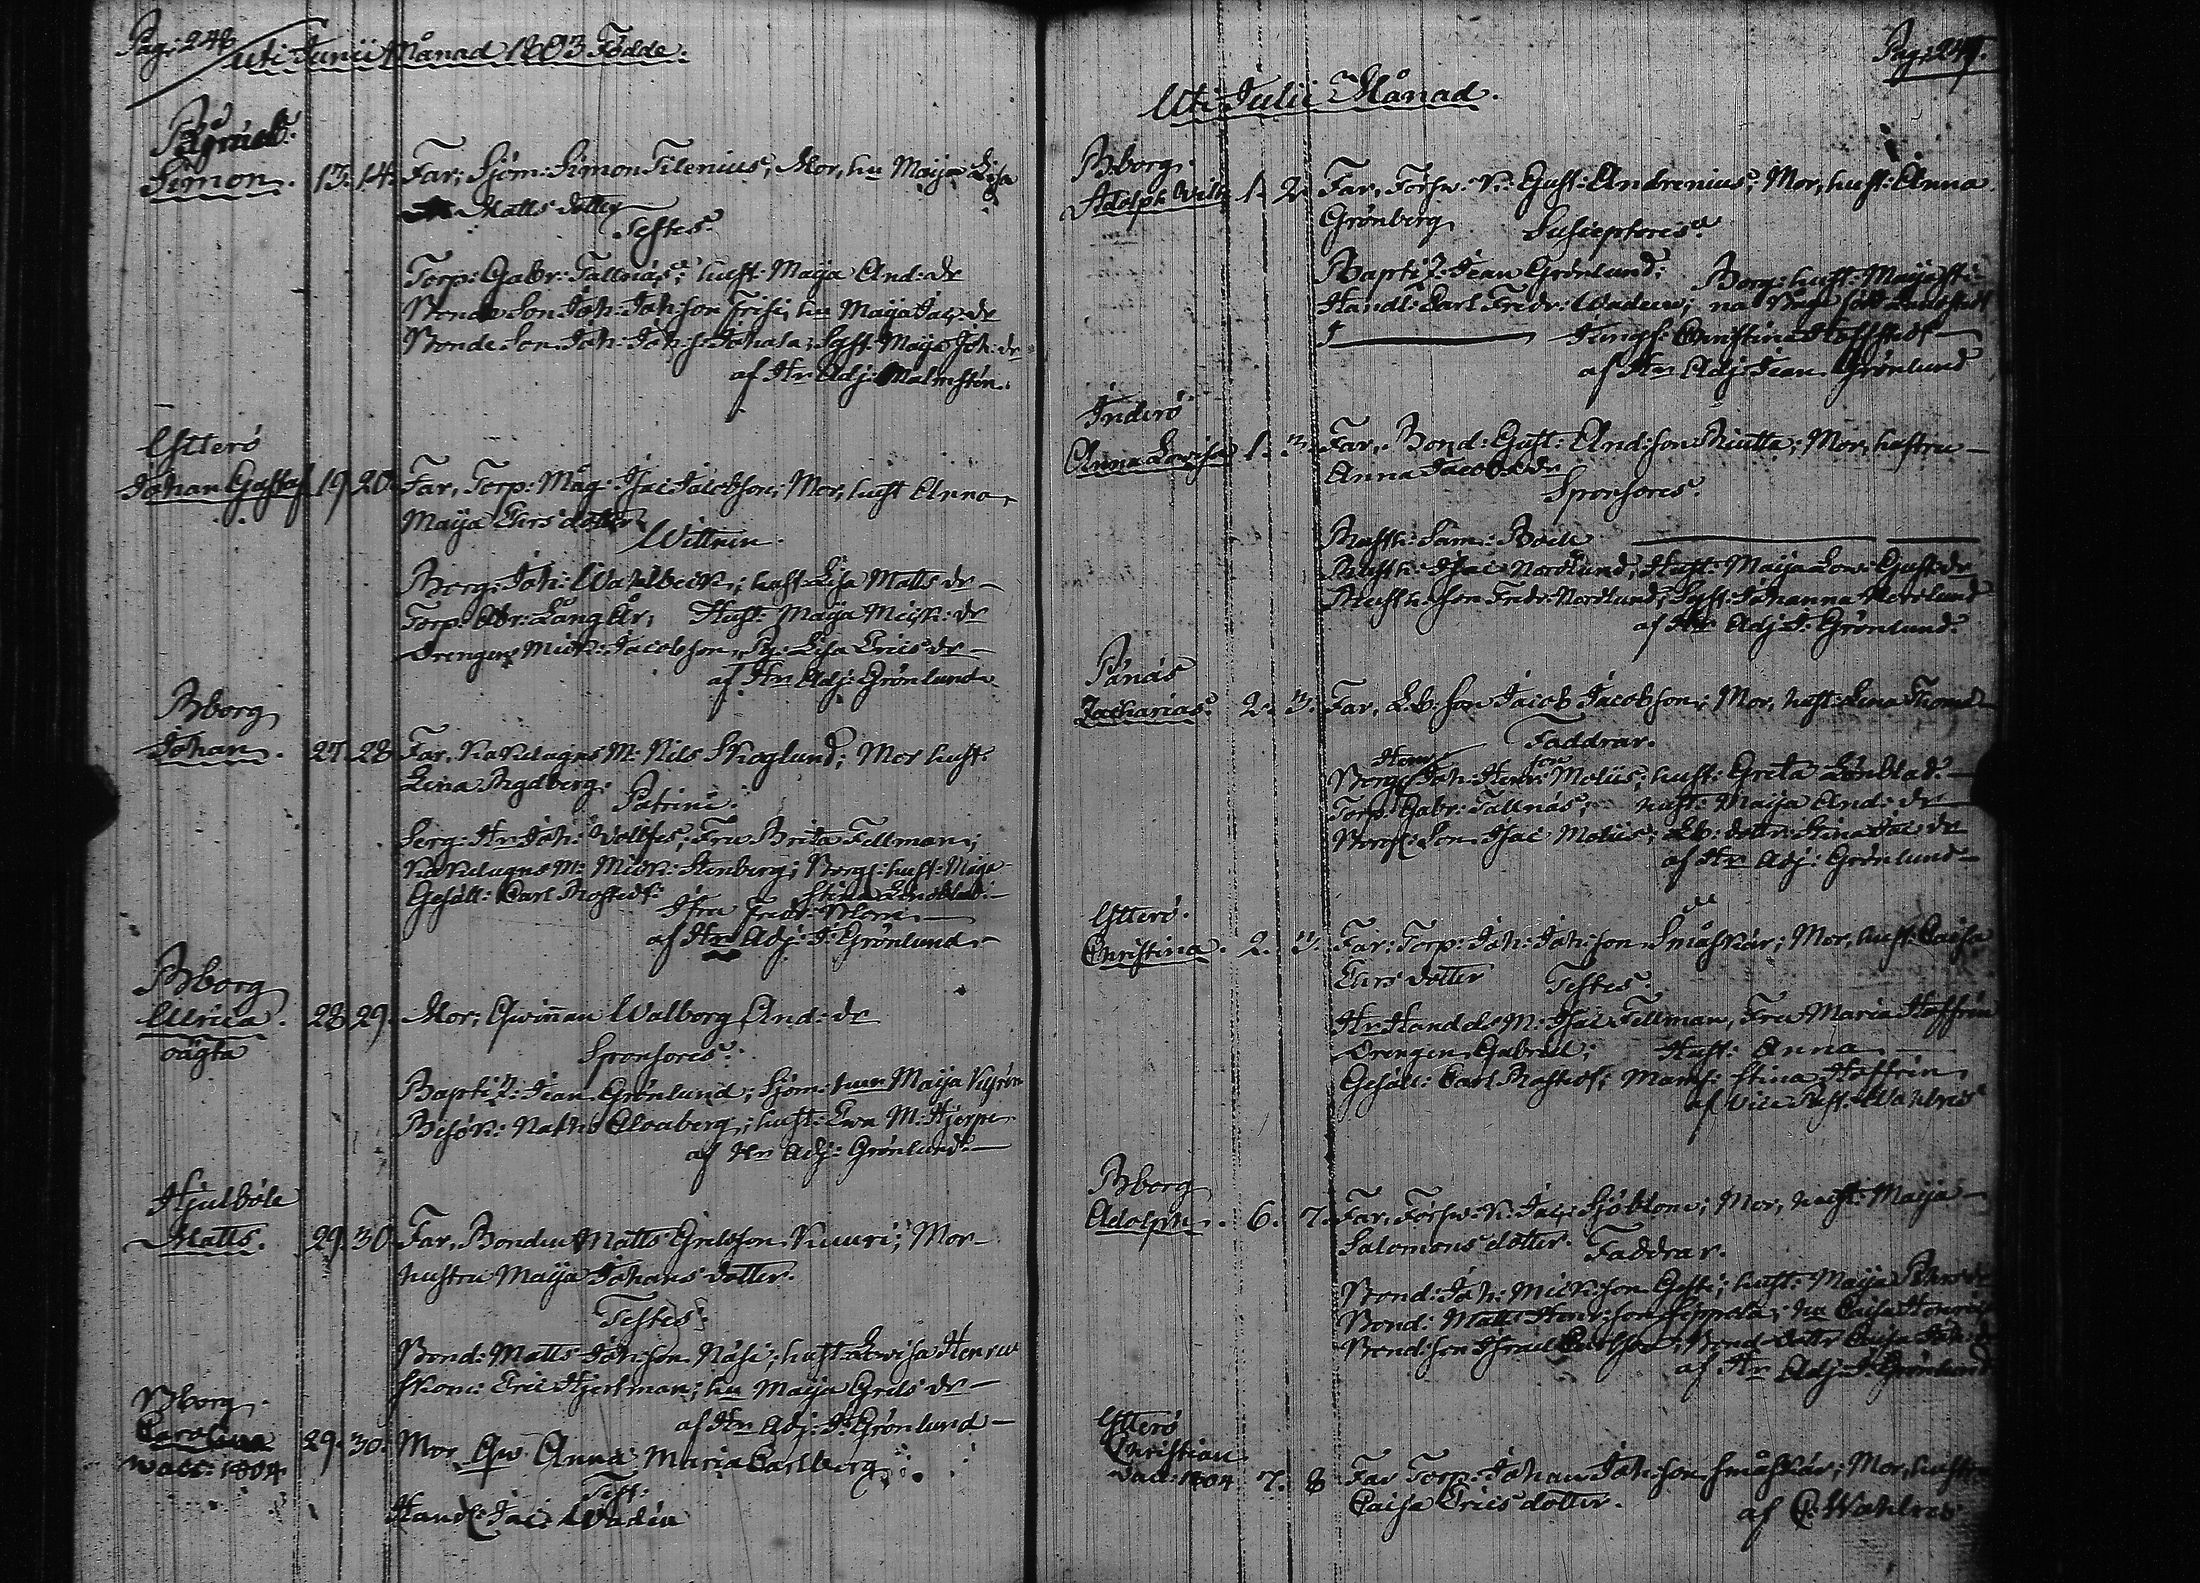 Pag: 248
Uti Junii Månad 1803 Födde.
Simon. 13. 14. Far, Sjöm: Simon Tilenius, Mor, hu Maija Lisa
Matts dotter
Testes.
Torp: Gabr: Tallnäs; hust: Maija And: dr
Bonde Son Joh: Joh:son Frisi, hu Maija Jac: dr
Bonde Son Joh: Joh:s: Johala; Syst: Maija Joh: dr
af Hr Adj: Malmsten.
Ytterö
Johan Gustaf 19. 20. Far, Torp: Måg: Isac Jacobson; Mor, hust Anna
Maija Ehrs dotter
Wittnen
Borg: Joh: Wahlbeck; hust Lisa Matts dr
Torp: Abr: Långkär, Hust: Maija Mick: dr
Drengen Mick: Jacobson, Pig: Lisa Erics dr
af Hr Adj: Grönlund
Bborg
Johan. 27. 28. Far, Kakelugns M: Nils Skoglund; Mor hust:
Lina Bergberg.
Patrini.
Serg: Hr Joh: Fru Brita Fellman;
Kakelugns M: Mick: Stenberg; Borgl: hust: Maja
Gesäll: Carl Stina Lindblad
Jfru Fredr: Blom
af Hr Adj: J: Grönlund
Bborg
Ulrica. 28 29. Mor, Qwinnan Walborg And: dr
oägta
Sponsores.
Baptiz: Jean Grönlund; Sjöm: hun Maija
Besök: Aloaberg; hust: Ewa M: Hjerpe
af Hr Adj: Grönlund
Hjulböle
Matts. 29. 30 Far, Bonden Matts Grelsson Knuuri; Mor
hustru Maija Johans dotter.
Testes.
Bond: Matts Joh:son Näsi; hust Lovisa Henr
Skom: Eric Hjertman; hu Maija Grels dr
af Hr Adj: J: Grönlund
Bborg.
Carolina 29. 30. Mor Qw. Anna Maria Carlberg
Wacc: 1804
Test:
Handl: Jac: Wadén
Pag: 249.
Uti Julii Månad.
Bborg.
Adolph Wilh 1. 2. Far, Försw: K: Gust: Andrenius; Mor, hust: Anna
Grönberg Susceptores
Baptiz: Jean Grönlund; Borg: hust: Maija Sti
Handl: Carl Fredr: Wadeen;
Jungf: Christina
af Hr Adj: Jean Grönlund
Inderö
Anna Lovisa 1. 3. Far, Bond: Gust: And:son Riutta; Mor, hustru
Anna Jacobs dr
Sponsores.
Rusth: Sam: Böck
Rusth: Isac Nordlund, Hust: Maija Lov: Gust: dr
Rusth: son Fredr: Nordlund, Syst: Johanna Nordlund
af Hr Adj: J: Grönlund.
Pänäs
Zacharias. 2. 3. Far, Lb: son Jacob Jacobson; Mor, hust: Lena Thomd
Faddrar.
Borg: Joh: Henr:son Molüs; hust: Greta Lönblad.
Torp: Gabr: Tallnäs; hust: Maija And: dr
Borgl: Son Isac Molüs; Lb: dottr: Stina Jac: dr
af Hr Adj: Grönlund
Ytterö.
Christina. 2. 3. Far: Torp: Joh: Joh:son Småskär; Mor, hust: Caisa
Ehrs dotter Testes.
Hr Handels M: Isac Fellman, Fru Maria
Drengen Gabriel; Hust: Anna
Gesäll: Carl Mams: Stina
af Vice Past: Wahlroos
Bborg
Adolph. 6. 7. Far, Försw: K: Jac: Sjöblom; Mor, hust: Maija
Salomons dotter. Faddrar.
Bond: Joh: Mick:son hust: Maija
Bond: Matts Henr:son Seppälä; hu Caisa
Bond: son Israel Bond: dottr Caisa Joh:
af Hr Adj: J: Grönlund
Ytterö
Christian
Vac: 1804 7. 8 Far Torp: Johan Joh:son Småskär; Mor, hustru
Caisa Erics dotter. af C: Wahlroos